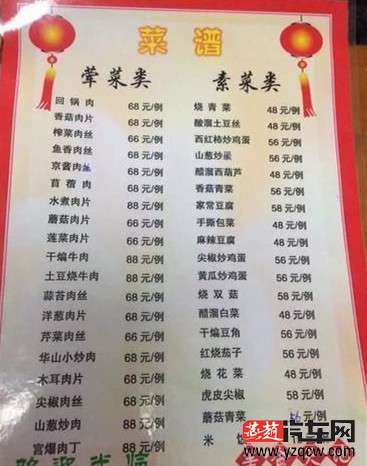 菜谱
荤菜类
回锅肉 68元/例
香菇肉片 68元/例
榨菜肉丝 66元/例
鱼香肉丝 68元/例
京酱肉丝 68元/例
苜蓿肉 68元/例
水煮肉片 88元/例
蘑菇肉片 66元/例
莲菜肉片 66元/例
干煸牛肉 88元/例
土豆烧牛肉 88元/例
蒜苔肉丝 68元/例
洋葱肉片 68元/例
芹菜肉丝 66元/例
华山小炒肉 68元/例
木耳肉片 68元/例
尖椒肉丝 68元/例
山葱炒肉 88元/例
宫爆肉丁 88元/例
素菜类
烧青菜 48元/例
酸溜土豆丝 48元/例
西红柿炒鸡蛋 56元/例
山葱炒 56元/例
醋溜西葫芦 48元/例
香菇青菜 56元/例
家常豆腐 58元/例
手撕包菜 48元/例
麻辣豆腐 48元/例
尖椒炒鸡蛋 56元/例
黄瓜炒鸡蛋 56元/例
烧双菇 58元/例
醋溜白菜 48元/例
干煸豆角 56元/例
红烧茄子 56元/例
烧花菜 48元/例
虎皮尖椒 58元/例
蘑菇青菜 56元/例
米
汽车网
www.yzqcw.com